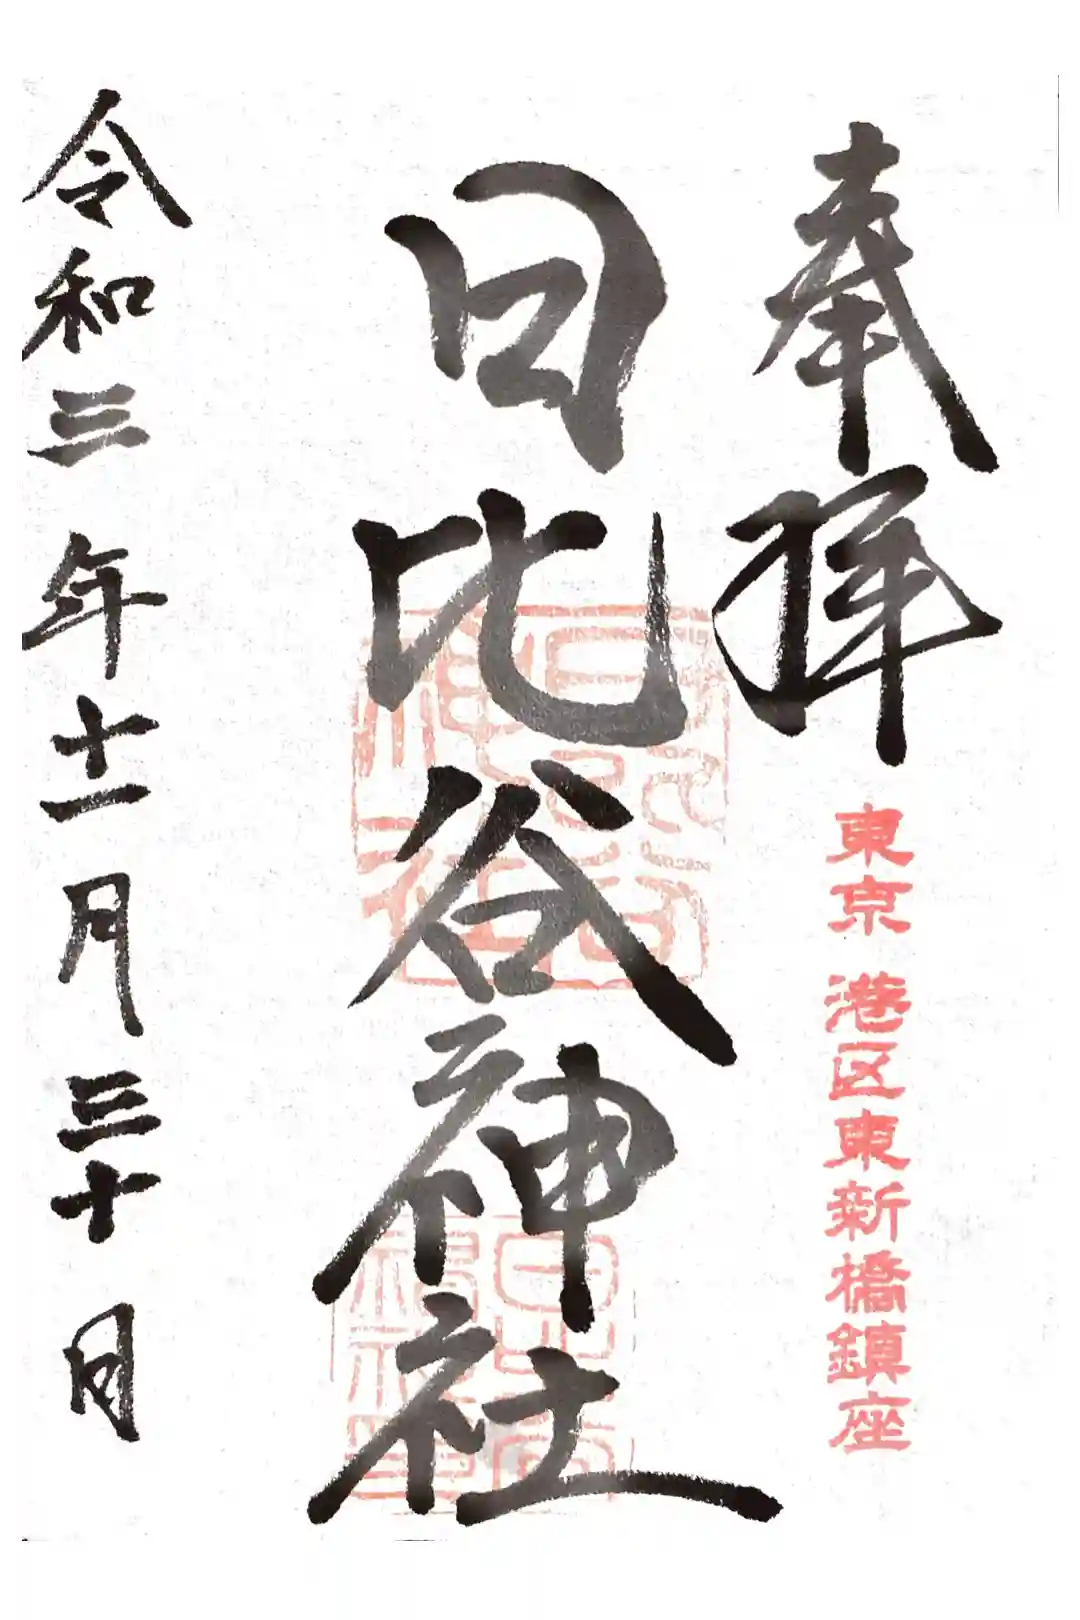 奉拝
東京 港区東新橋鎮座
日比谷神社
令和三年十一月三十日